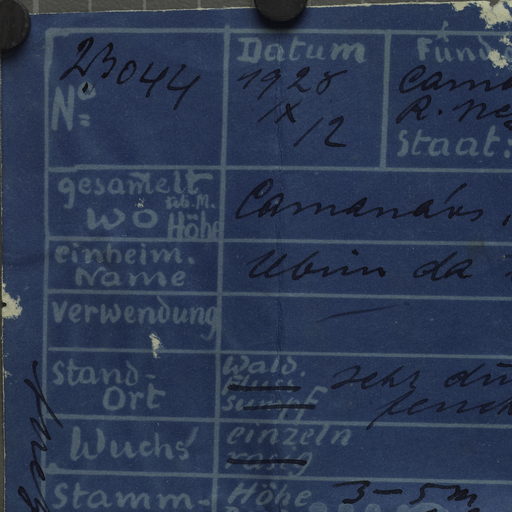 23044
No
Datum
1928
IX
12
Fund
Cama
R. Neg
Staat:
gesam̄elt
wo üb.M. Höhe
Camanáos
einheim.
Name
Ubim da
Verwendung
—
Stand-
Ort
Wald.
Fluss
sumpf
sehr
Wuchs
einzeln
rasig
Stamm-
Höhe 3-5m